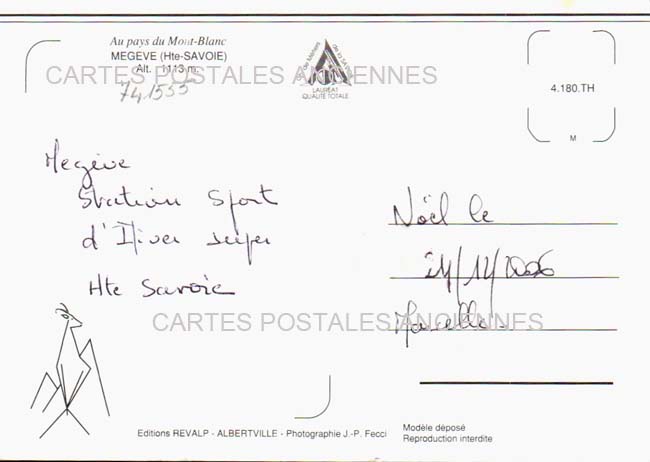 Au pays du Mont-Blanc
MEGEVE (Hte-SAVOIE)
Alt. 1113 m.
CARTES POSTALES ANCIENNES
741555
LAURÉAT
QUALITÉ TOTALE
4.180.TH
M
Megève
Station Sport
d'Hiver super
Hte Savoie
Noël le
24/12/2006
Marcelle.
CARTES POSTALES ANCIENNES
Editions REVALP - ALBERTVILLE - Photographie J.-P. Fecci
Modèle déposé
Reproduction interdite